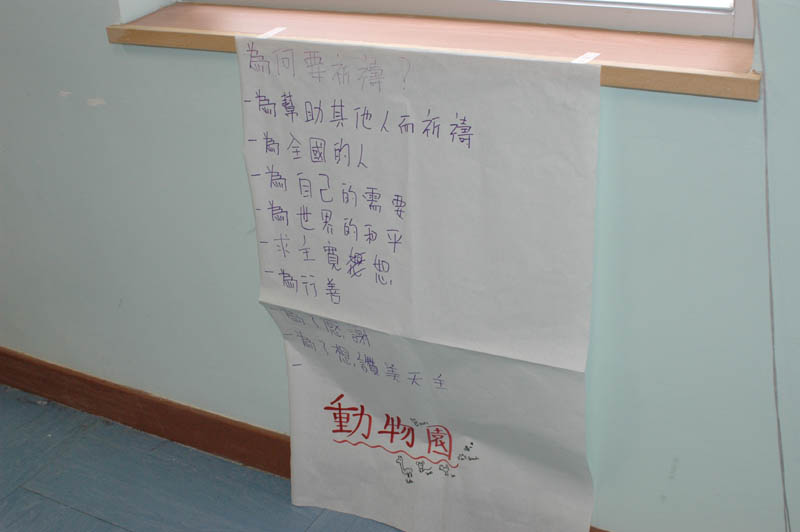 為何要祈禱？
-為幫助其他人而祈禱
-為全國的人
-為自己的需要
-為世界的和平
-求主寬恕
-為行善
為了感謝
-為了想讚美天主
-
動物園